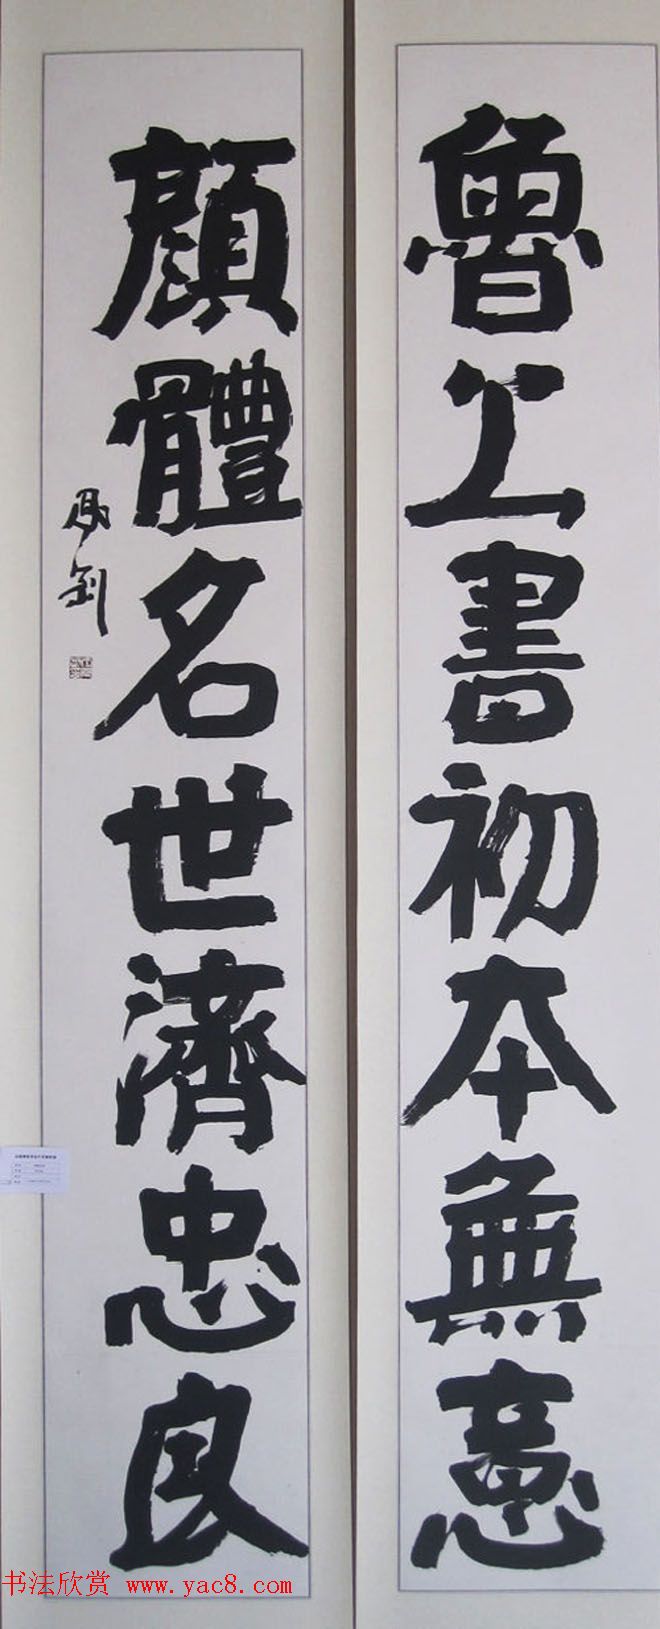 魯公書初本無意
顔體名世濟忠良
书法欣赏 www.yac8.com